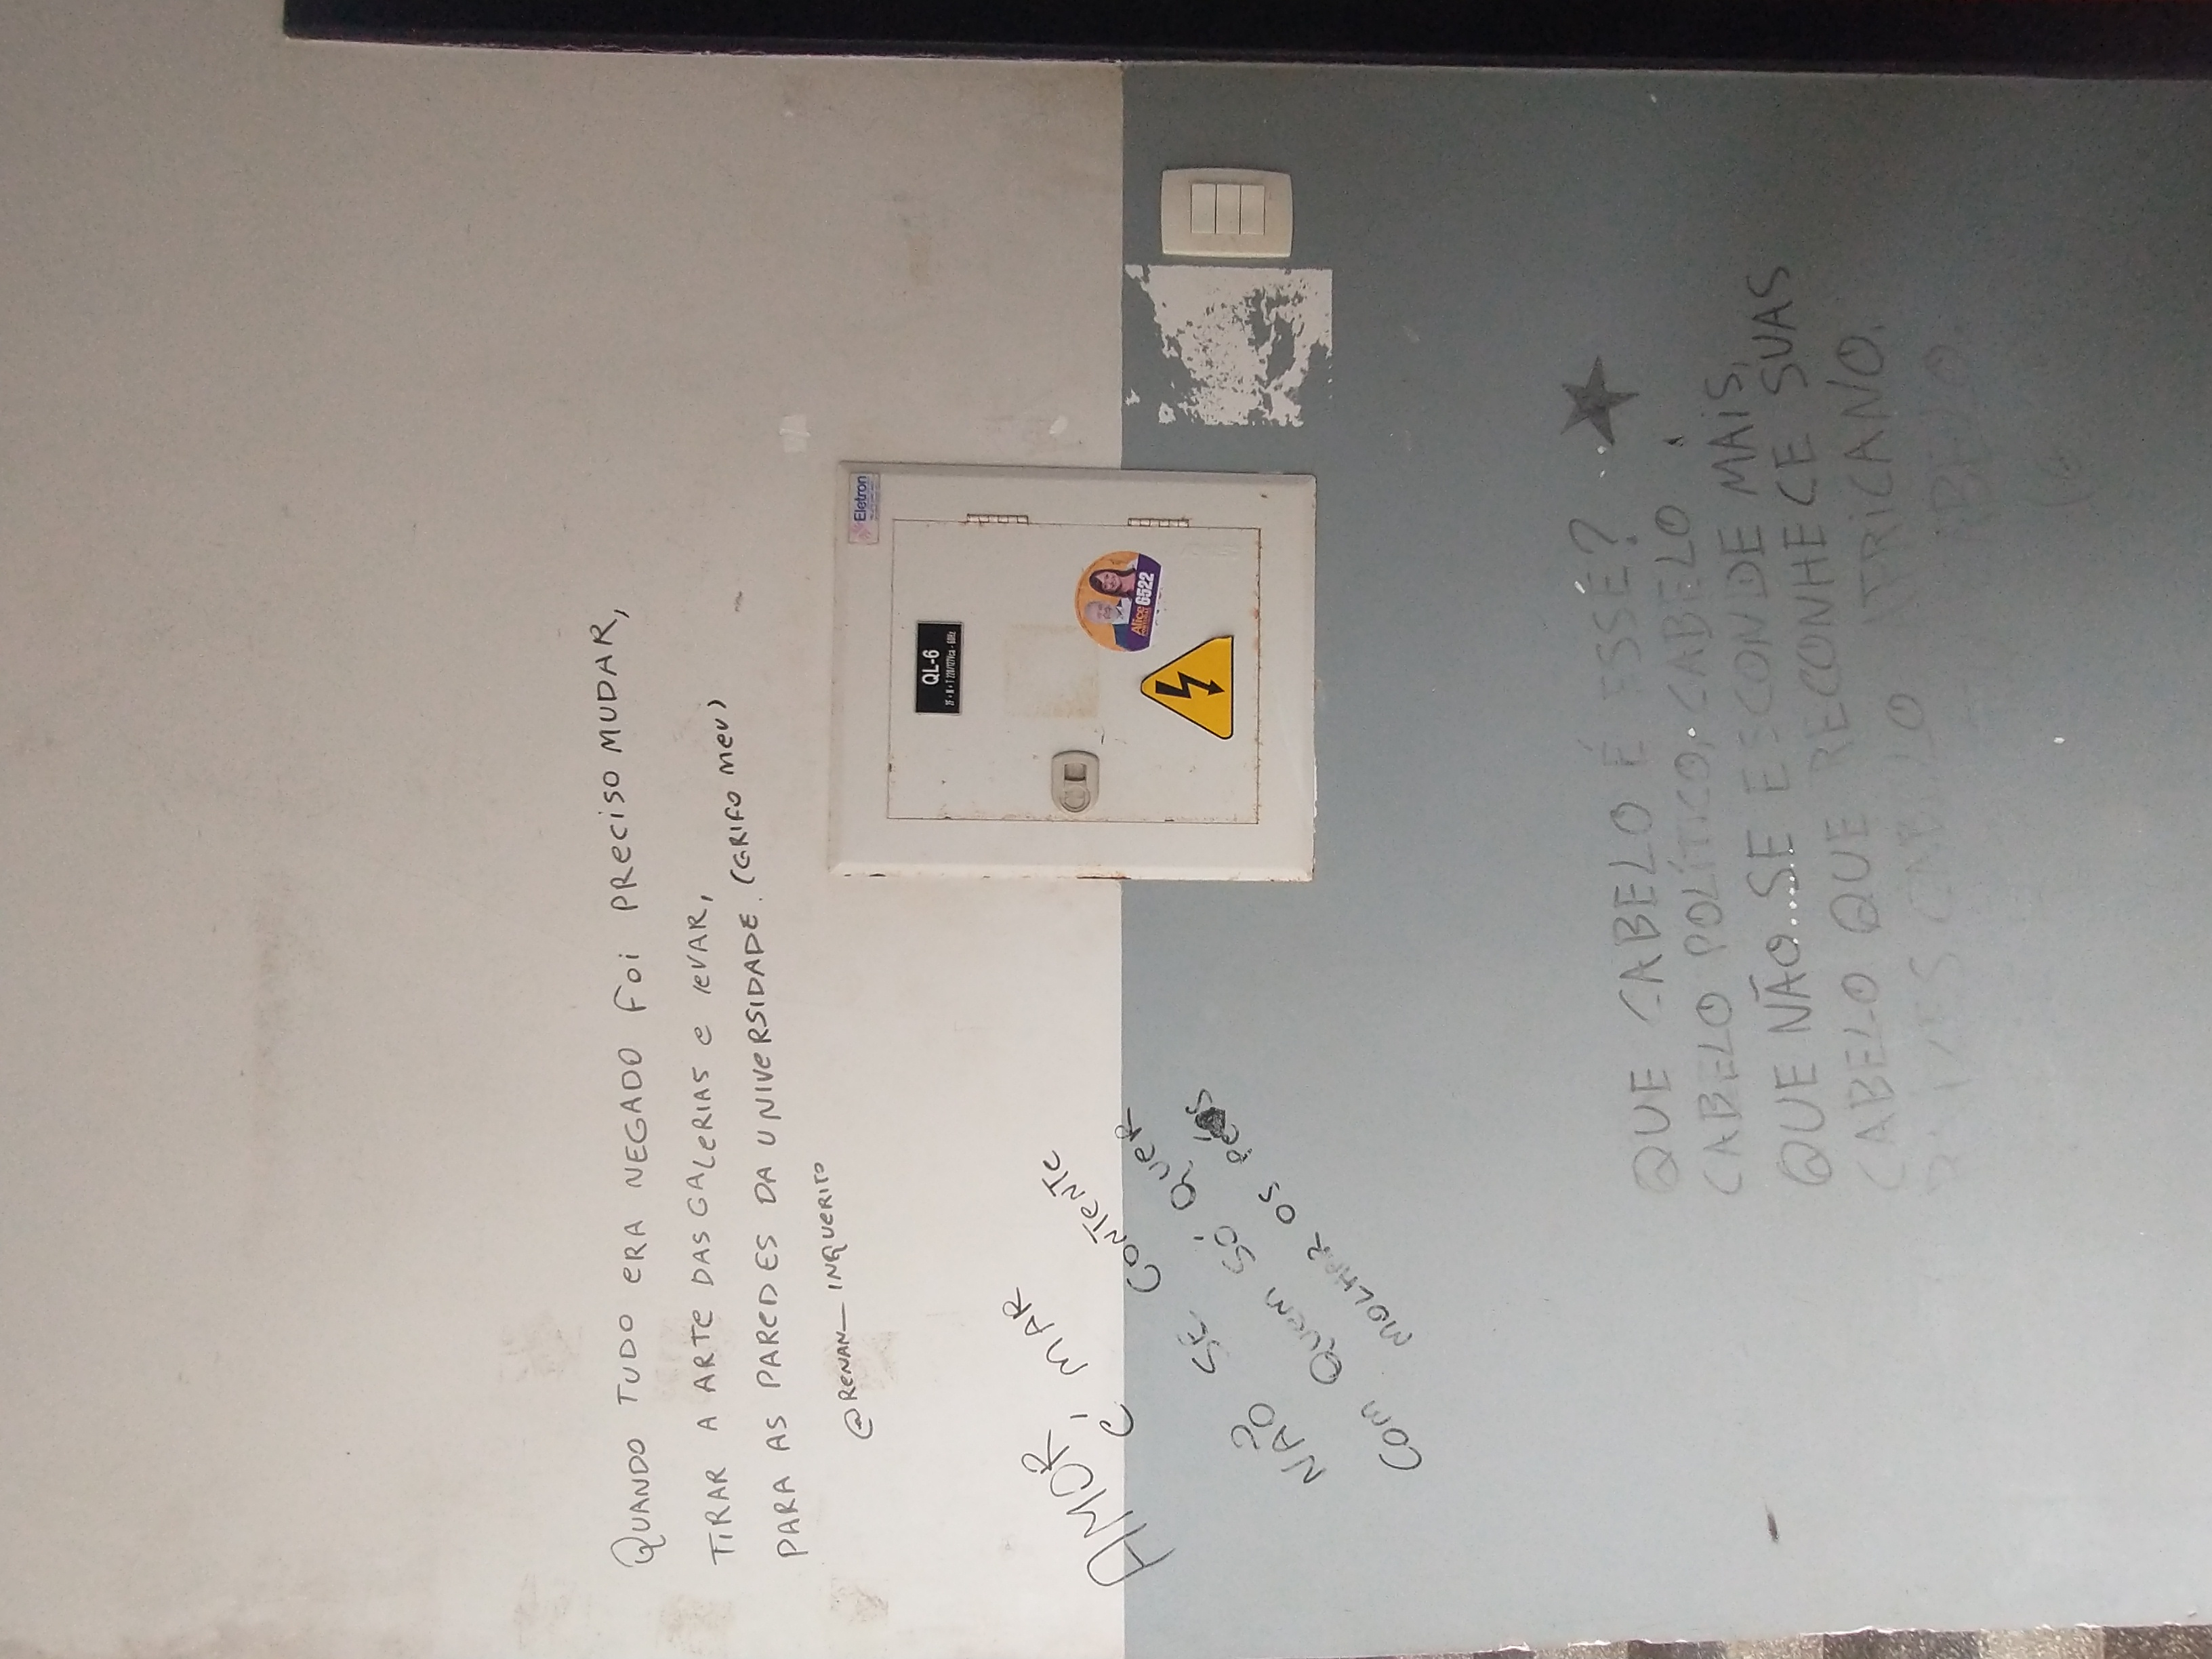 QUANDO TUDO ERA NEGADO FOI PRECISO MUDAR,
TIRAR A ARTE DAS GALERIAS E LEVAR,
PARA AS PAREDES DA UNIVERSIDADE. (GRIFO MEU)
@RENAN_INQUERITO
Eletron
QL-6
2F + N + T 220/127Vca - 60Hz
AMOR
É MAR
NÃO SE CONTENTE
COM QUEM SÓ QUER
MOLHAR OS PÉS
Alice
PORTUGAL
6522
QUE CABELO É ESSE?
CABELO POLÍTICO, CABELO
QUE NÃO SE ESCONDE MAIS,
CABELO QUE RECONHECE SUAS
RAÍZES CABELO AFRICANO.
CABELO.